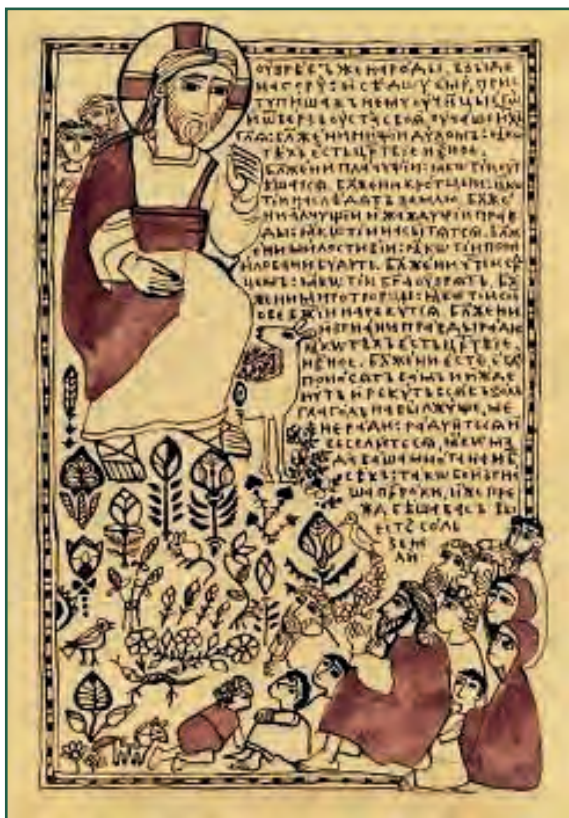 ОУЗРѢВЪ ЖЕ НАРОДЫ, ВЗЫДЕ
НА ГОРУ: И СѢДШУ ЕМУ, ПРИС
ТУПИША КЪ НЕМУ ОУЧНЦЫ ЕГѠ
И ѾВЕРЗЪ ОУСТА СВОѦ ОУЧАШЕ ИХЪ
ГЛѦ: БЛЖЕНИ НИЩIИ ДУХОМЪ: ꙖКѠ
ТѢХЪ ЕСТЬ ЦРТВIЕ НБНОЕ.
БЛЖЕНИ ПЛАЧУЩIИ: ꙖКѠ ТIИ ОУТ
ѢШАТСѦ. БЛЖЕНИ КРОТЦЫИ: ꙖКѠ
ТIИ НАСЛѢДѦТЪ ЗЕМЛЮ. БЛЖЕ
НИ АЛЧУЩIИ И ЖАЖДУЩIИ ПРАВ
ДЫ: ꙖКѠ ТIИ НАСЫТѦТСѦ. БЛЖ
ЕНИ МИЛОСТИВIИ: ꙖКѠ ТIИ ПОМ
ИЛОВАНИ БУДУТЪ. БЛЖЕНИ ЧТIИ СР
ЦЕМЪ: ꙖКѠ ТIИ БГА ОУЗРѦТЪ. БЛ
ЖЕНИ МИРОТВОРЦЫ: ꙖКѠ ТIИ СЫН
ОВЕ БЖIИ НАРЕКУТСѦ. БЛЖЕНИ
ИЗГНАНИ ПРАВДЫ РАДИ
ꙖКѠ ТѢХЪ ЕСТЬ ЦРТВIЕ
НБНОЕ. БЛЖЕНИ ЕСТЕ, ЕГДА
ПОНОСѦТЪ ВАМЪ И ИЖДЕ
НУТЪ И РЕКУТЪ ВСѦКЪ ЗОЛЪ
ГЛАГОЛЪ НА ВЫ ЛЖУЩЕ, МЕ
НЕ РАДИ: РАДУЙТЕСѦ И
ВЕСЕЛИТЕСѦ, ꙖКѠ МЗ
ДА ВАША МНОГА НА НБ
СѢХЪ: ТАКѠ БО ИЗГНА
ША ПРРОКИ, ИЖЕ ПРЕ
ЖДЕ БѢША ВАСЪ ВЫ
ЕСТЕ СОЛЬ
ЗЕМ
ЛИ